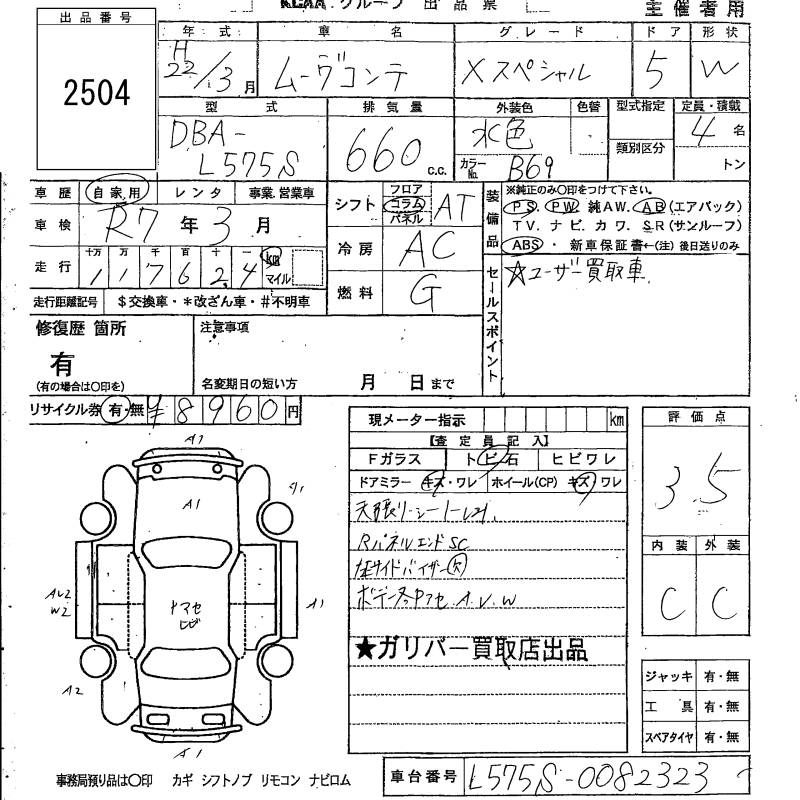 KCAA グループ 出品票
主催者用
出品番号
2504
年式 車名 グレード ドア 形状
H
22/3月 ムーヴコンテ Xスペシャル 5 W
型式 排気量 外装色 色替 型式指定 定員・積載
DBA-
L575S 660 c.c. 水色 類別区分 4名
カラーNo. B69 トン
車歴 自家用 レンタ 事業.営業車
車検 R7年3月
走行 十万 万 千 百 十 一
117624 km マイル
走行距離記号 $交換車・*改ざん車・#不明車
シフト フロア コラム パネル AT
冷房 AC
燃料 G
装備品 ※純正のみ○印をつけて下さい。
PS. PW. 純AW. AB(エアバック)
TV. ナビ. カワ. SR(サンルーフ)
ABS・新車保証書←(注)後日送りのみ
セールスポイント ☆ユーザー買取車
修復歴 箇所
有
(有の場合は○印を)
注意事項
名変期日の短い方 月 日まで
リサイクル券 有・無 ¥8960円
現メーター指示 km
【査定員記入】
Fガラス トビ石 ヒビワレ
ドアミラー キズ・ワレ ホイール(CP) キズ・ワレ
天張り・シート
RパネルエンドSC
左サイドバイザー欠
A.U.W
★ガリバー買取店出品
評価点
3.5
内装 外装
C C
ジャッキ 有・無
工具 有・無
スペアタイヤ 有・無
A1
A1
A1
AU2
W2
A1
トマセ
ヒビ
A2
A1
事務局預り品は○印 カギ シフトノブ リモコン ナビロム
車台番号 L575S-0082323